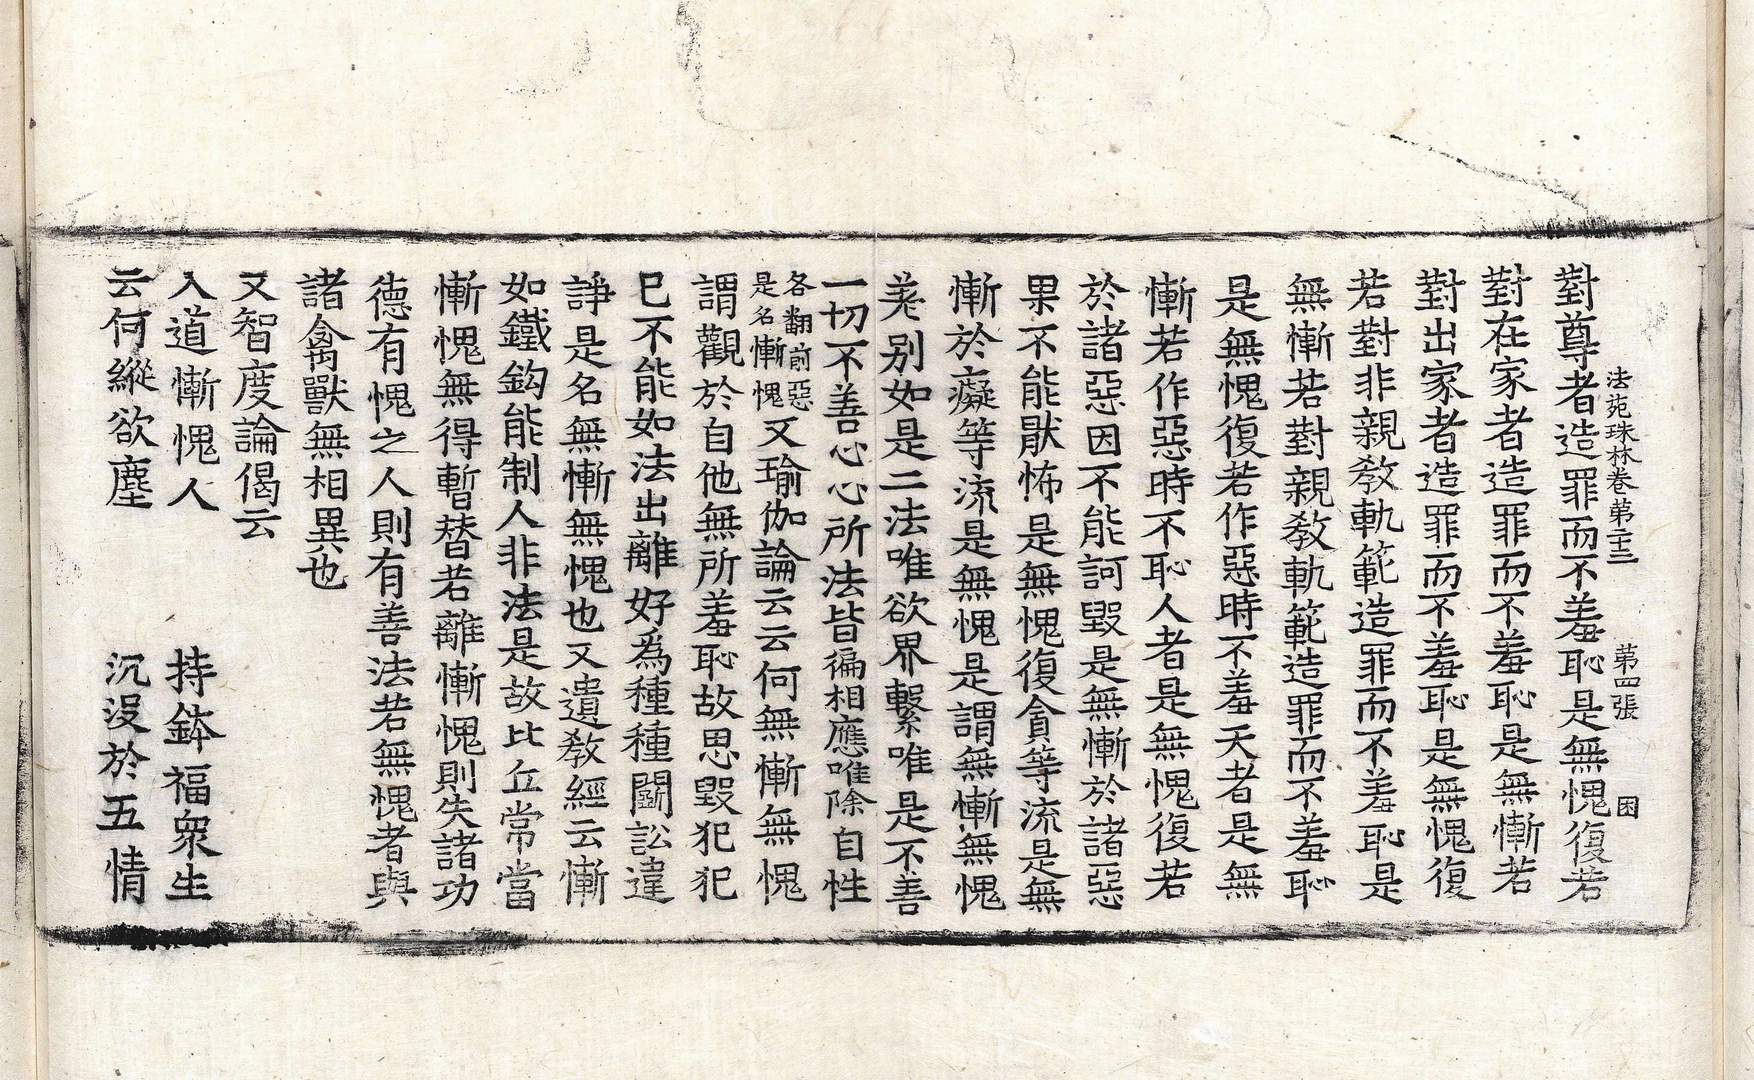 法苑珠林卷第二十三 第四張 困
對尊者造罪而不羞恥是無愧復若
對在家者造罪而不羞恥是無慚若
對出家者造罪而不羞恥是無愧復
若對非親教軌範造罪而不羞恥是
無慚若對親教軌範造罪而不羞恥
是無愧復若作惡時不羞天者是無
慚若作惡時不恥人者是無愧復若
於諸惡因不能訶毀是無慚於諸惡
果不能厭怖是無愧復貪等流是無
慚於癡等流是無愧是謂無慚無愧
差別如是二法唯欲界繫唯是不善
一切不善心心所法皆徧相應唯除自性
各翻前惡
是名慚愧
又瑜伽論云云何無慚無愧
謂觀於自他無所羞恥故思毀犯犯
已不能如法出離好爲種種鬬訟違
諍是名無慚無愧也又遺教經云慚
如鐵鈎能制人非法是故比丘常當
慚愧無得暫替若離慚愧則失諸功
德有愧之人則有善法若無愧者與
諸禽獸無相異也
又智度論偈云
入道慚愧人 持鉢福衆生
云何縱欲塵 沉没於五情